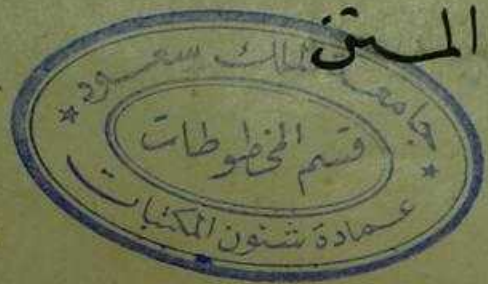 المـــتن
جامعة الملك سعود
قسم المخطوطات
عمادة شئون المكتبات